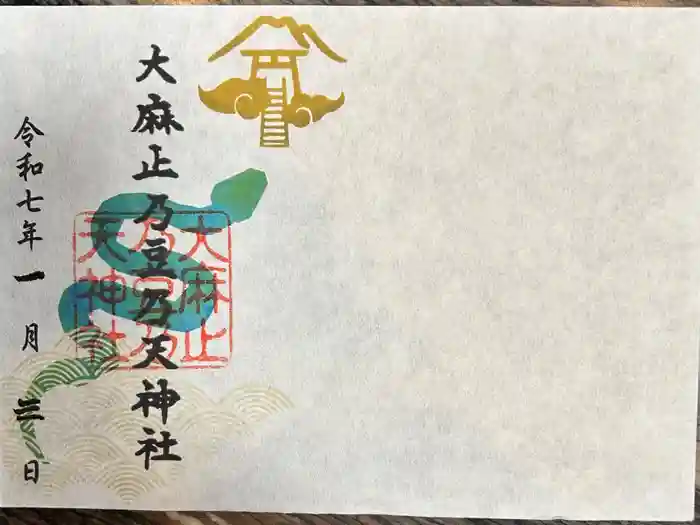 大麻止乃豆乃天神社
大麻止
乃豆乃
天神社
令和七年一月三日